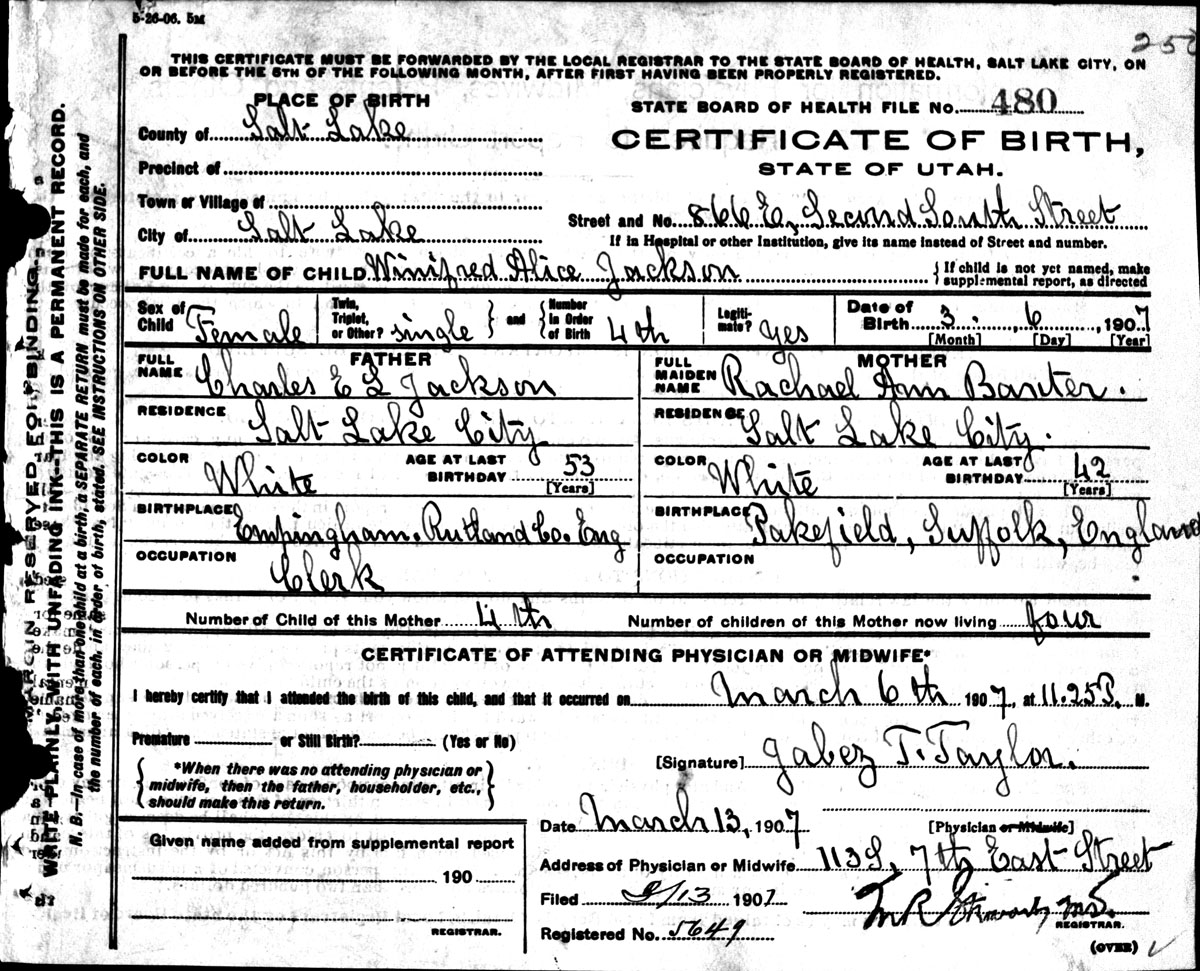 5-26-06. 5M
250
THIS CERTIFICATE MUST BE FORWARDED BY THE LOCAL REGISTRAR TO THE STATE BOARD OF HEALTH, SALT LAKE CITY, ON
OR BEFORE THE 5TH OF THE FOLLOWING MONTH, AFTER FIRST HAVING BEEN PROPERLY REGISTERED.
PLACE OF BIRTH
STATE BOARD OF HEALTH FILE NO. 480
County of Salt Lake
CERTIFICATE OF BIRTH,
Precinct of
STATE OF UTAH.
Town or Village of
Street and No. 866 E, Second South Street
City of Salt Lake
If in Hospital or other Institution, give its name instead of Street and number.
FULL NAME OF CHILD Winifred Alice Jackson
{If child is not yet named, make
supplemental report, as directed
Sex of Child Female
Twin, Triplet, or Other? single } and { Number in Order of Birth 4th
Legitimate? yes
Date of Birth 3. 6, 1907
[Month] [Day] [Year]
FATHER
FULL NAME Charles E L Jackson
MOTHER
FULL MAIDEN NAME Rachael Ann Baxter.
RESIDENCE Salt Lake City
RESIDENCE Salt Lake City.
COLOR White AGE AT LAST BIRTHDAY 53 [Years]
COLOR White AGE AT LAST BIRTHDAY 42 [Years]
BIRTHPLACE Empingham. Rutland Co. Eng
BIRTHPLACE Pakefield, Suffolk, England
OCCUPATION Clerk
OCCUPATION
Number of Child of this Mother 4th Number of children of this Mother now living four
CERTIFICATE OF ATTENDING PHYSICIAN OR MIDWIFE*
I hereby certify that I attended the birth of this child, and that it occurred on March 6th 1907, at 11.25 P. M.
Premature or Still Birth? (Yes or No)
[Signature] Jabez T. Taylor.
{ *When there was no attending physician or
midwife, then the father, householder, etc.,
should make this return. }
Date March 13, 1907
[Physician or Midwife]
Given name added from supplemental report
190
REGISTRAR.
Address of Physician or Midwife 113 S, 7th East Street
Filed 3/13 1907
REGISTRAR.
Registered No. 5649
(OVER)
MARGIN RESERVED FOR BINDING.
WRITE PLAINLY WITH UNFADING INK--THIS IS A PERMANENT RECORD.
N. B.--In case of more than one child at a birth, a SEPARATE RETURN must be made for each, and
the number of each, in order of birth, stated. SEE INSTRUCTIONS ON OTHER SIDE.